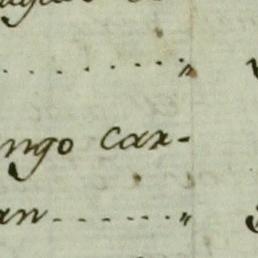 . . . . . . . . . . „
ngo Car-
an . . . . . . . „